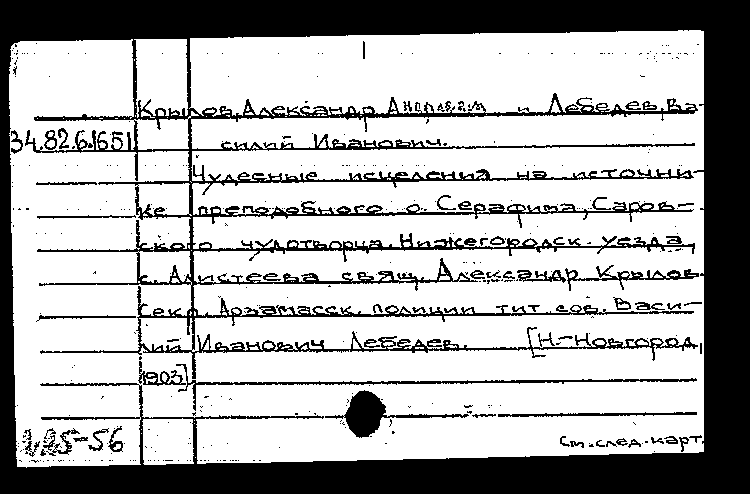 Крылов, Александр и Лебедев, Ва-
34.82.6.1651 силий Иванович.
Чудесные исцеления на источни-
ке преподобного о. Серафима, Саров-
ского чудотворца. Нижегородск. уезда,
с. Апистеева свящ. Александр Крылов
Секр. Арзамасск. полиции тит. сов. Васи-
лий Иванович Лебедев. [Н-Новгород,
1903]
25-56
См. след. карт.